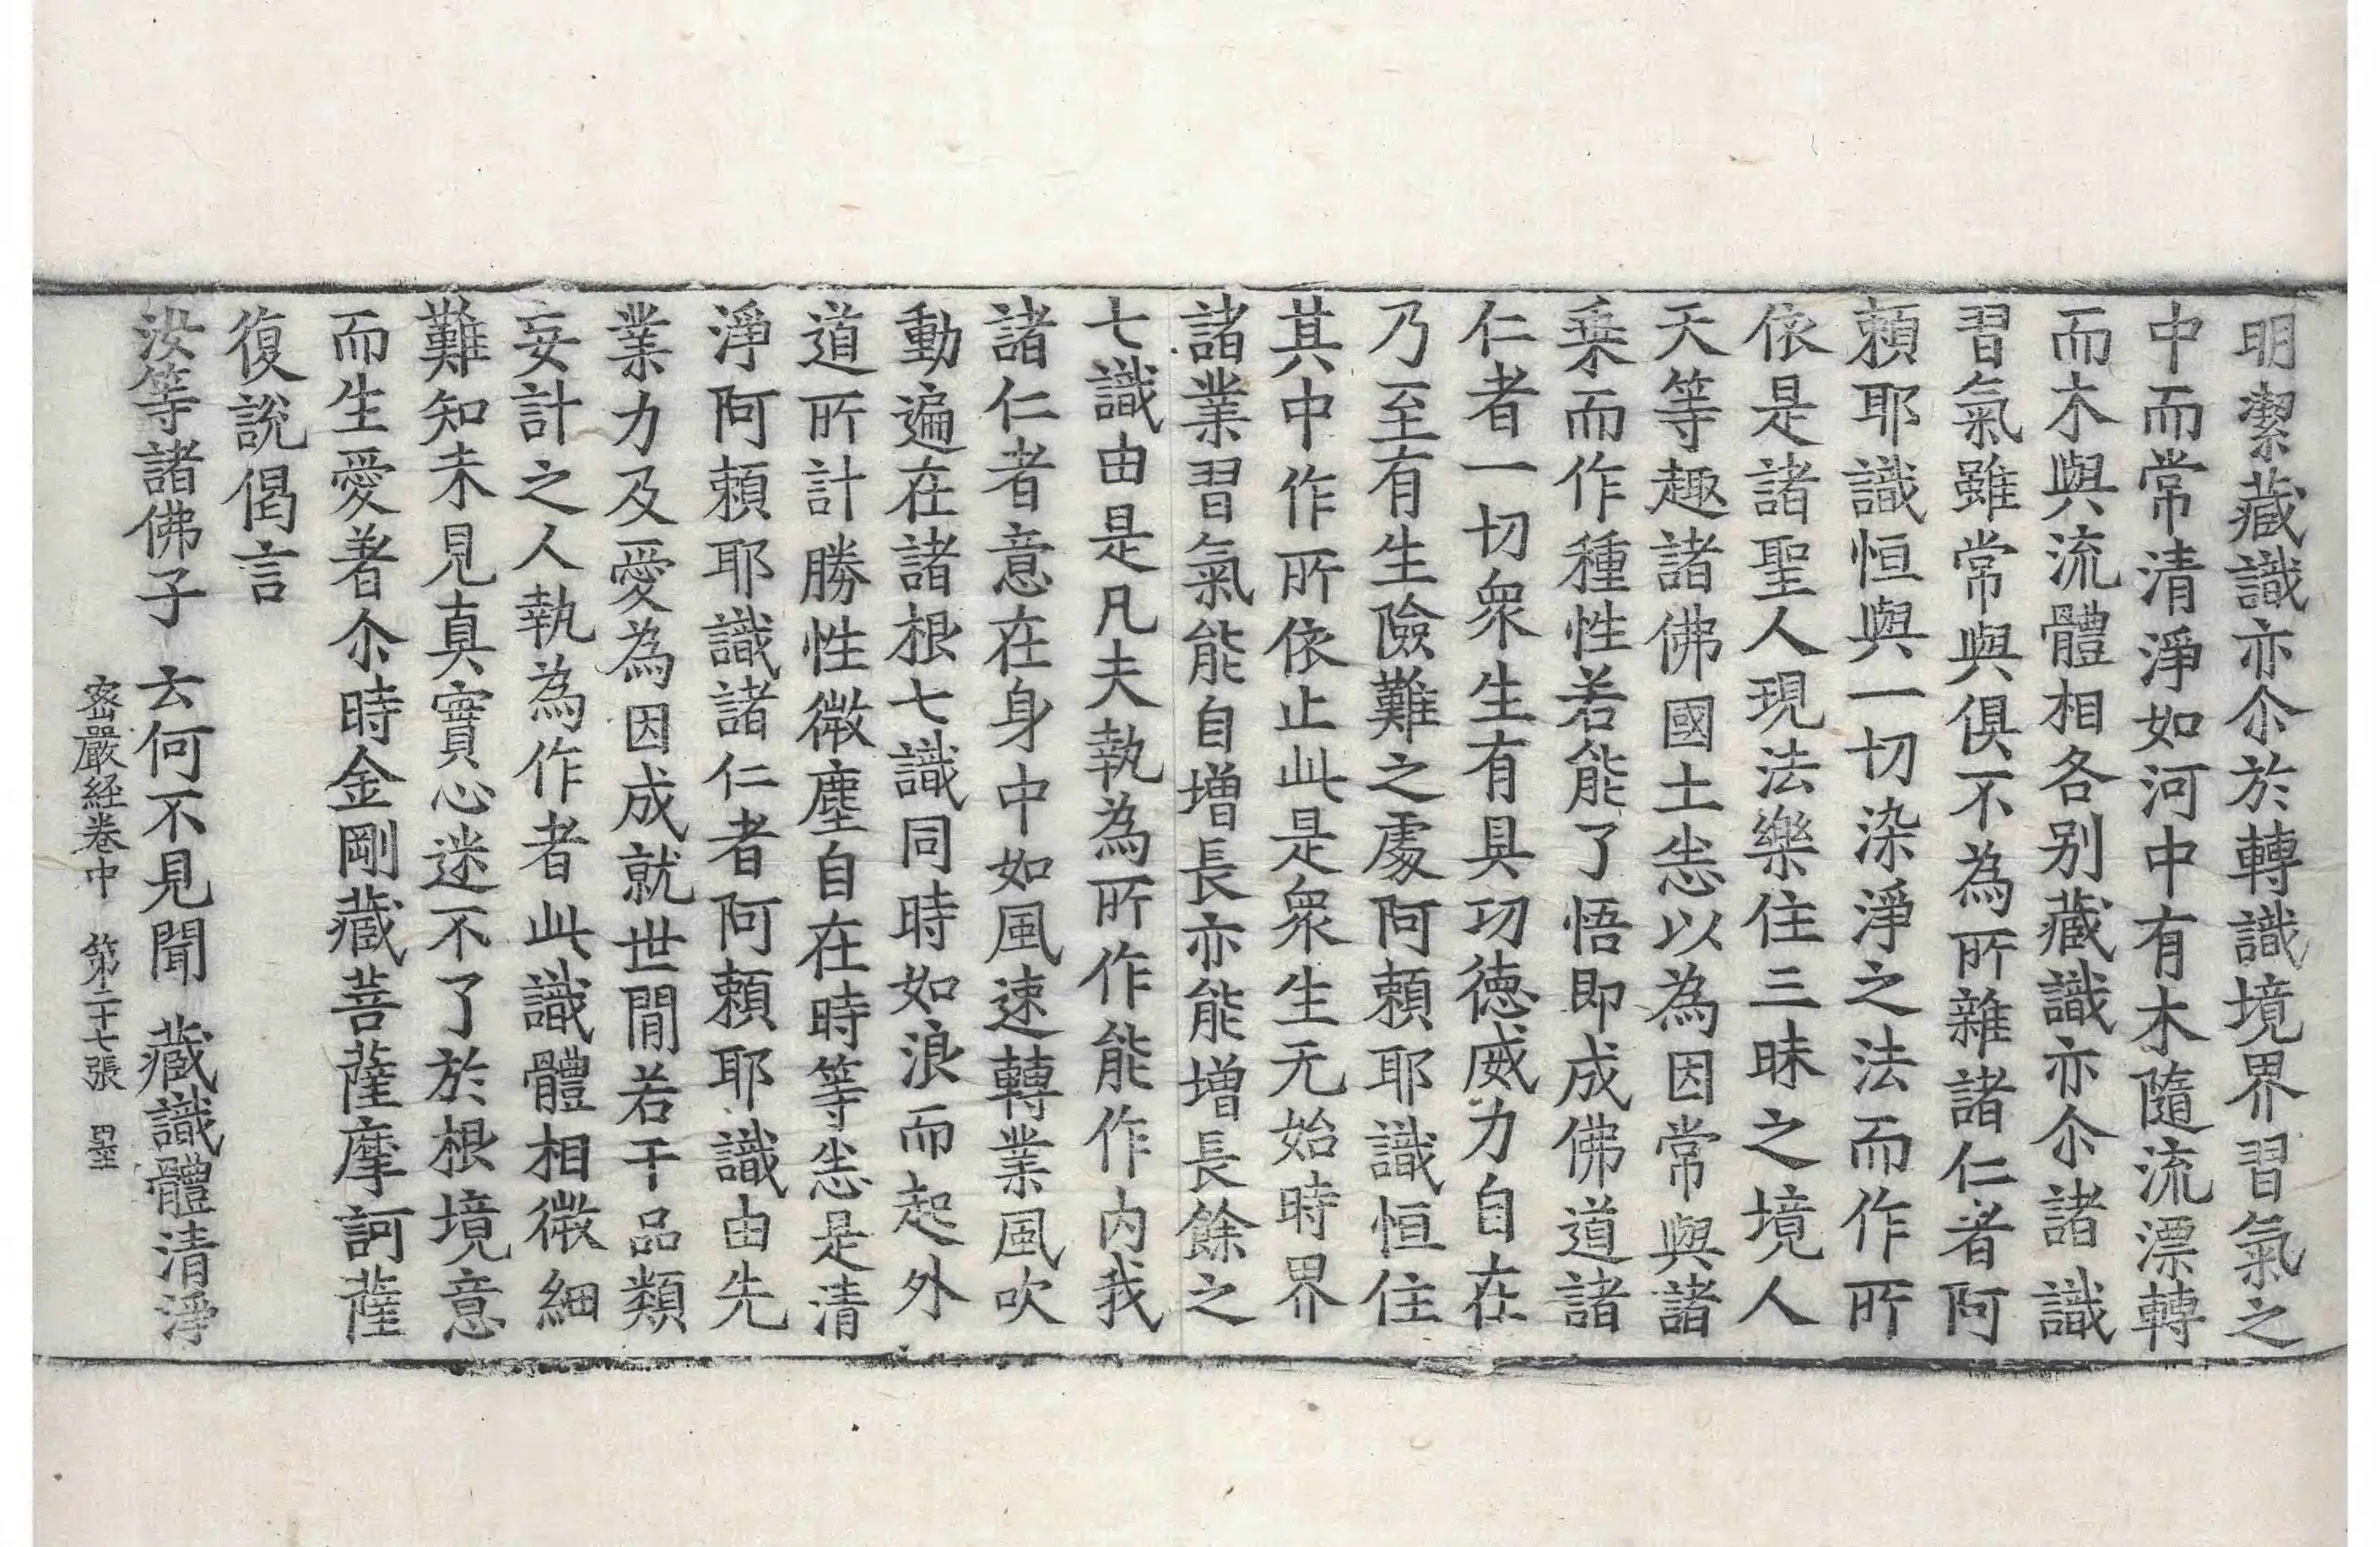 明潔藏識亦尒於轉識境界習氣之
中而常清淨如河中有木隨流漂轉
而木與流體相各别藏識亦尒諸識
習氣雖常與俱不為所雜諸仁者阿
賴耶識恒與一切染淨之法而作所
依是諸聖人現法樂住三昧之境人
天等趣諸佛國土恙以為因常與諸
乗而作種性若能了悟即成佛道諸
仁者一切衆生有具功徳威力自在
乃至有生險難之處阿賴耶識恒住
其中作所依止此是衆生无始時界
諸業習氣能自增長亦能增長餘之
七識由是凡夫執為所作能作内我
諸仁者意在身中如風速轉業風吹
動遍在諸根七識同時如浪而起外
道所計勝性微塵自在時等恙是清
淨阿賴耶識諸仁者阿賴耶識由先
業力及愛為因成就世間若干品類
妄計之人執為作者此識體相微細
難知未見真實心迷不了於根境意
而生愛著尒時金剛藏菩薩摩訶薩
復說偈言
汝等諸佛子 云何不見聞 藏識體清淨
密嚴経卷中 第二十七張 墨